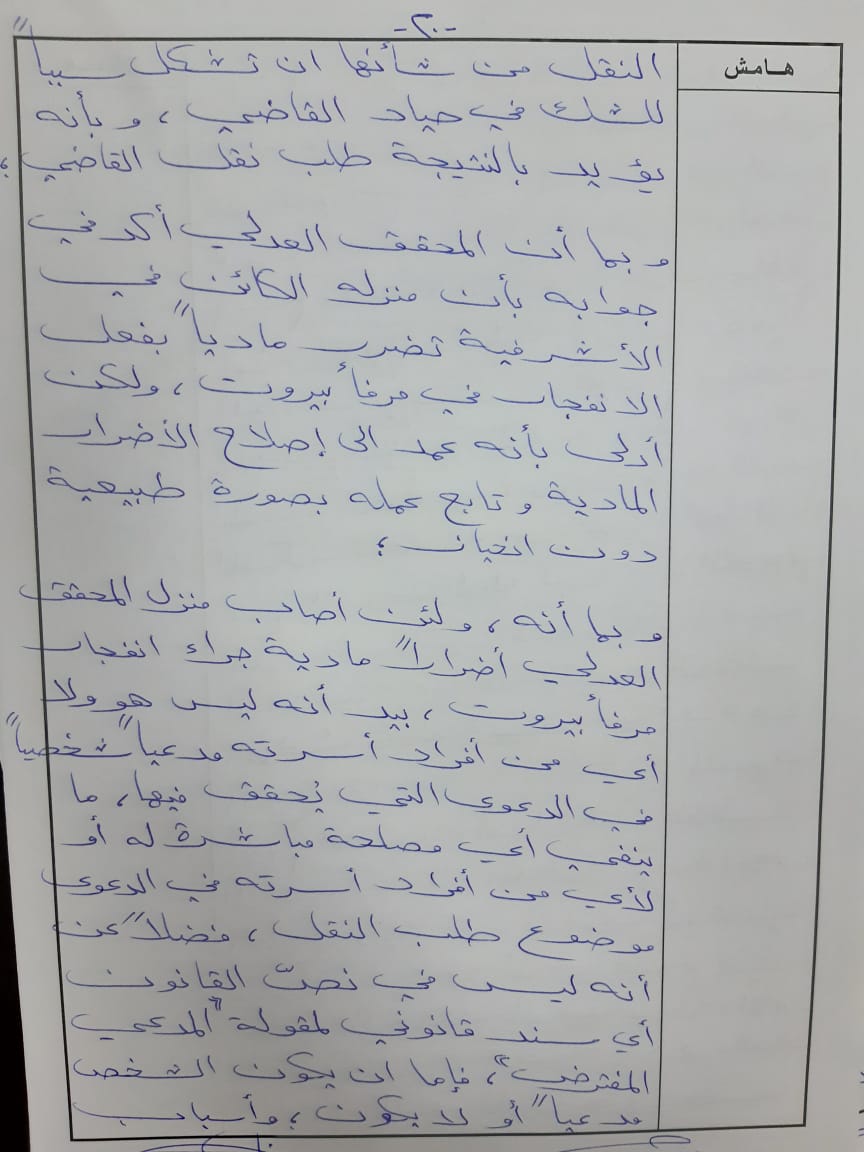 -٢٠-
هـامش
النقل من شأنها ان تشكل سبباً
للشك في حياد القاضي، وبأنه
يؤيد بالنتيجة طلب نقل القاضي؛
وبما أن المحقق العدلي أكد في
جوابه بأن منزله الكائن في
الأشرفية تضرر مادياً بفعل
الانفجار في مرفأ بيروت، ولكن
أدلى بأنه عمد الى إصلاح الأضرار
المادية وتابع عمله بصورة طبيعية
دون انحياز؛
وبما أنه، ولئن أصاب منزل المحقق
العدلي أضراراً مادية جراء انفجار
مرفأ بيروت، بيد أنه ليس هو ولا
أي من أفراد أسرته مدعياً شخصياً
في الدعوى التي يُحقق فيها، ما
ينفي أي مصلحة مباشرة له أو
لأي من أفراد أسرته في الدعوى
موضوع طلب النقل، فضلاً عن
أنه ليس في نصّ القانون
أي سند قانوني لمقولة "المدعي
المفترض"، فإما ان يكون الشخص
مدعياً أو لا يكون، وأسباب